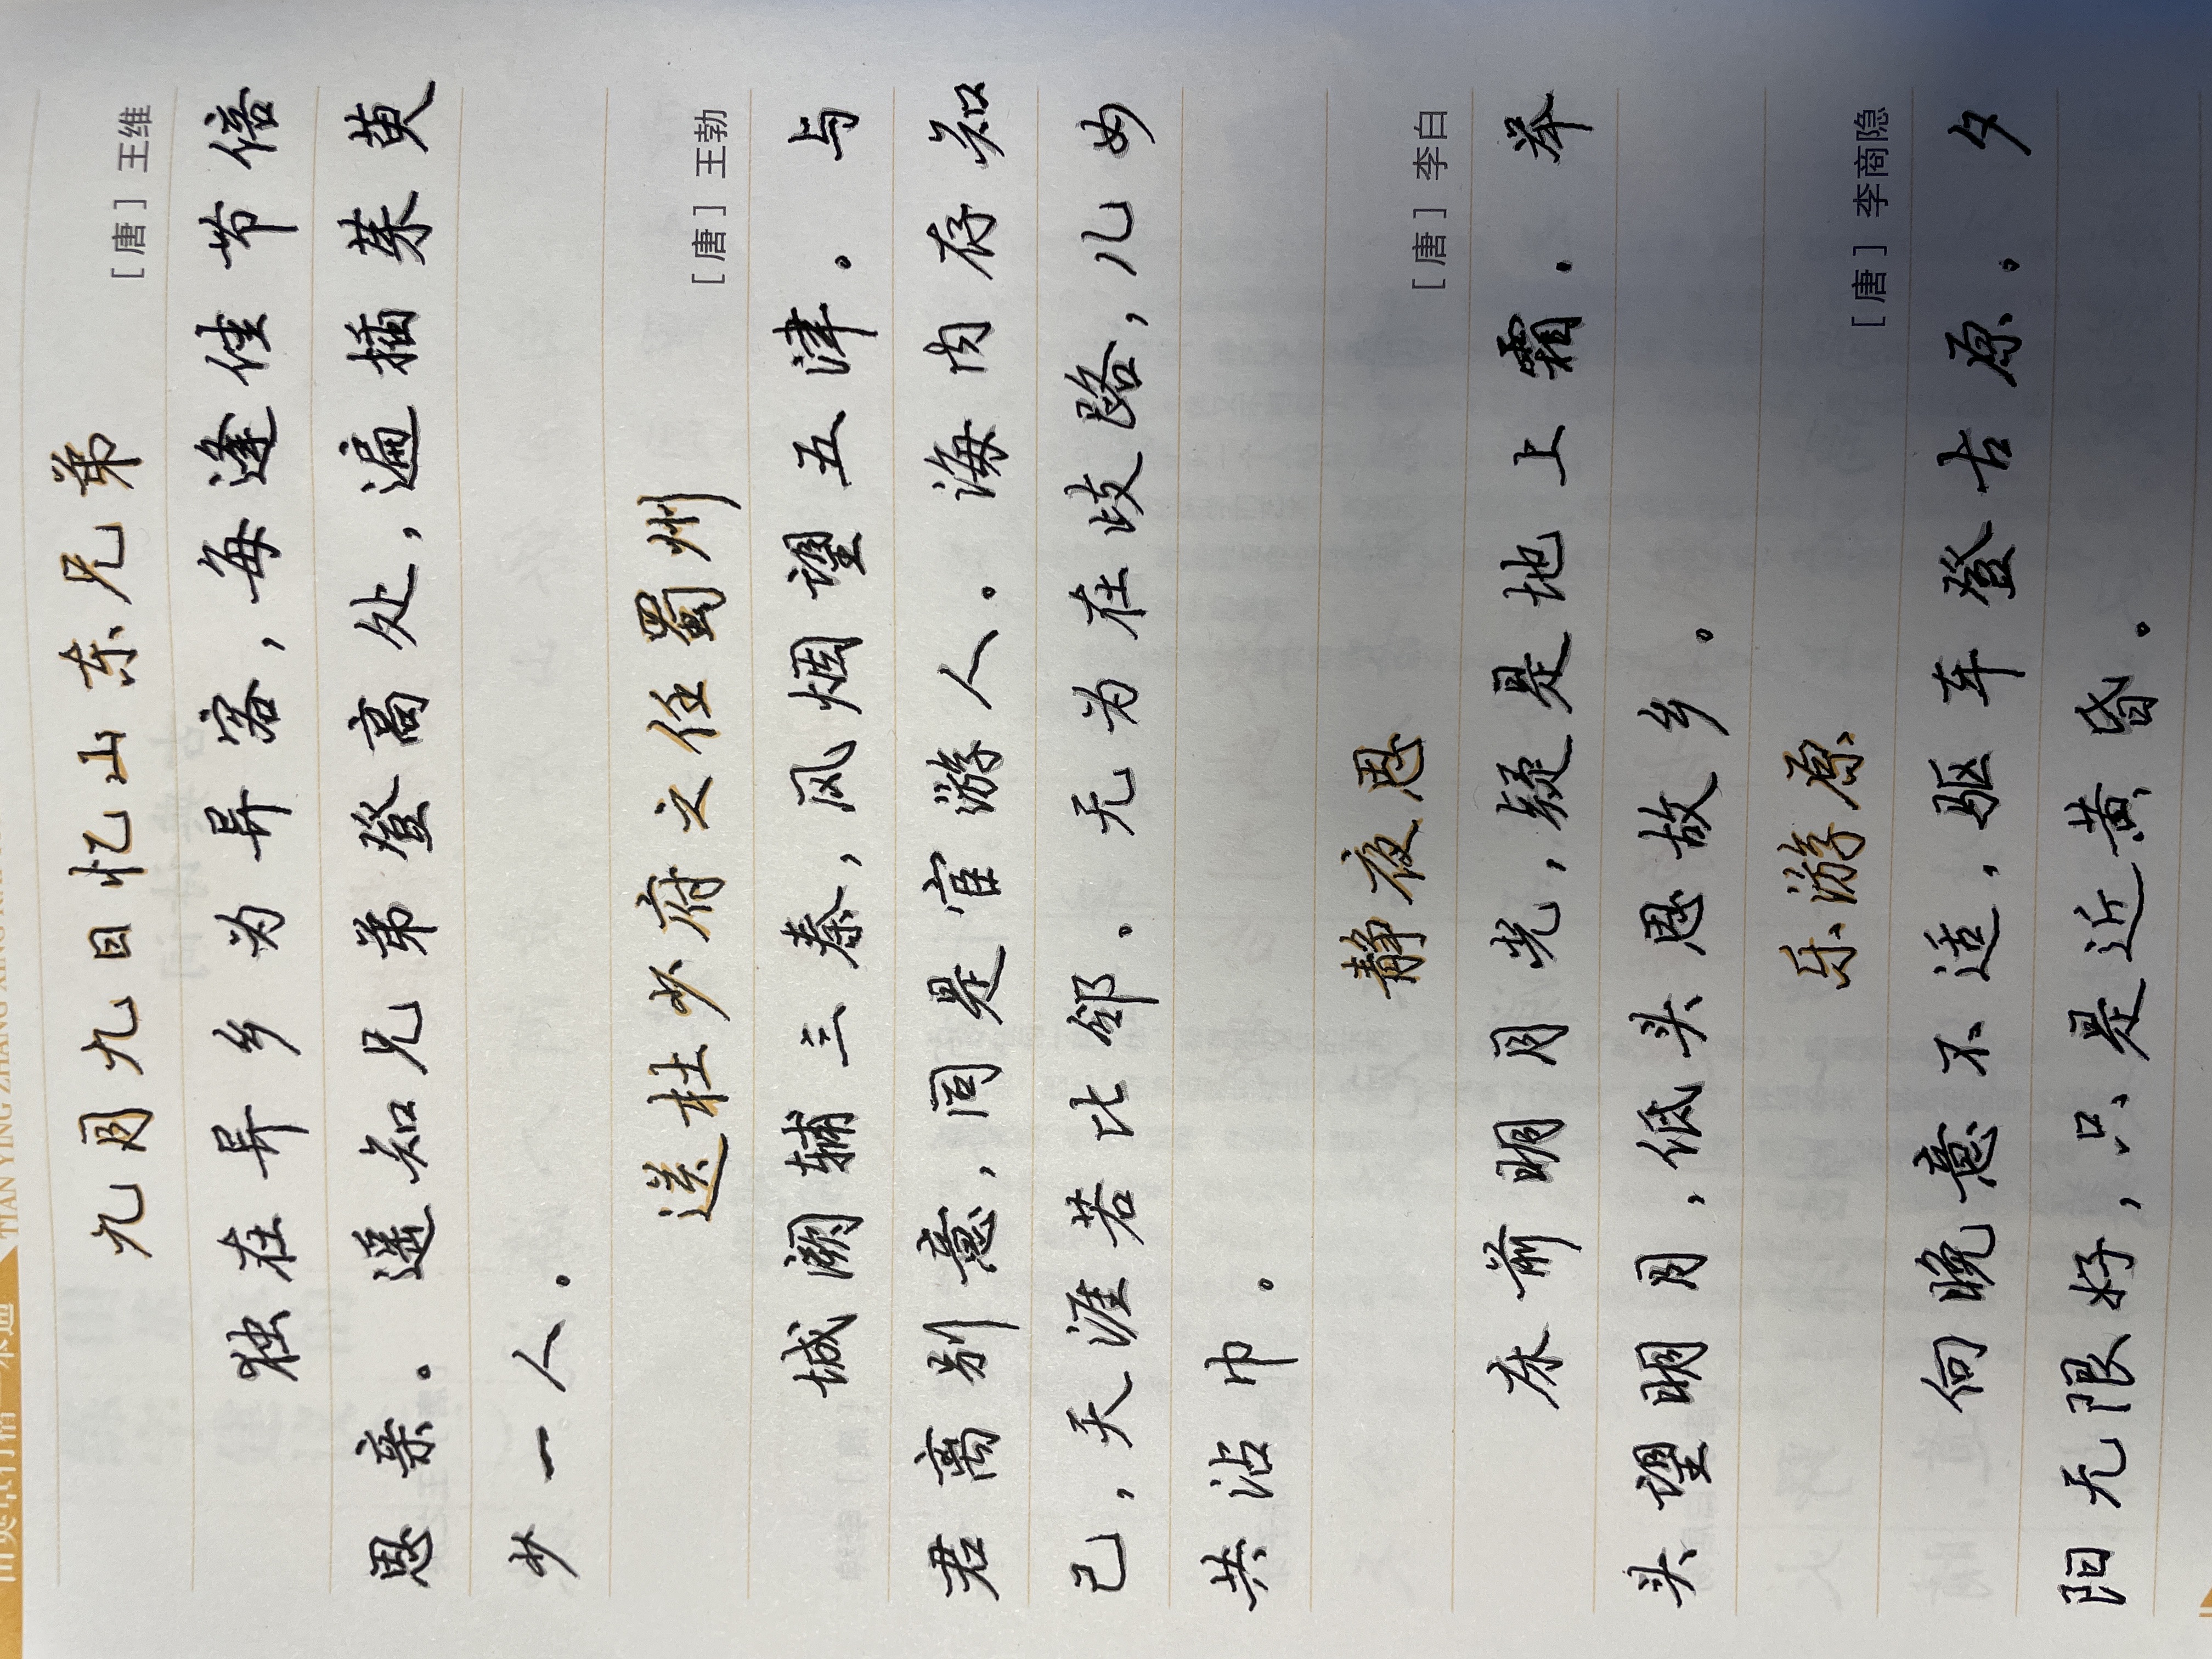 田英章行楷一本通 TIAN YING ZHANG XING KAI
九月九日忆山东兄弟 [唐] 王维
独在异乡为异客,每逢佳节倍
思亲。遥知兄弟登高处,遍插茱萸
少一人。
送杜少府之任蜀州 [唐] 王勃
城阙辅三秦,风烟望五津。与
君离别意,同是宦游人。海内存知
己,天涯若比邻。无为在歧路,儿女
共沾巾。
静夜思 [唐] 李白
床前明月光,疑是地上霜。举
头望明月,低头思故乡。
乐游原 [唐] 李商隐
向晚意不适,驱车登古原。夕
阳无限好,只是近黄昏。